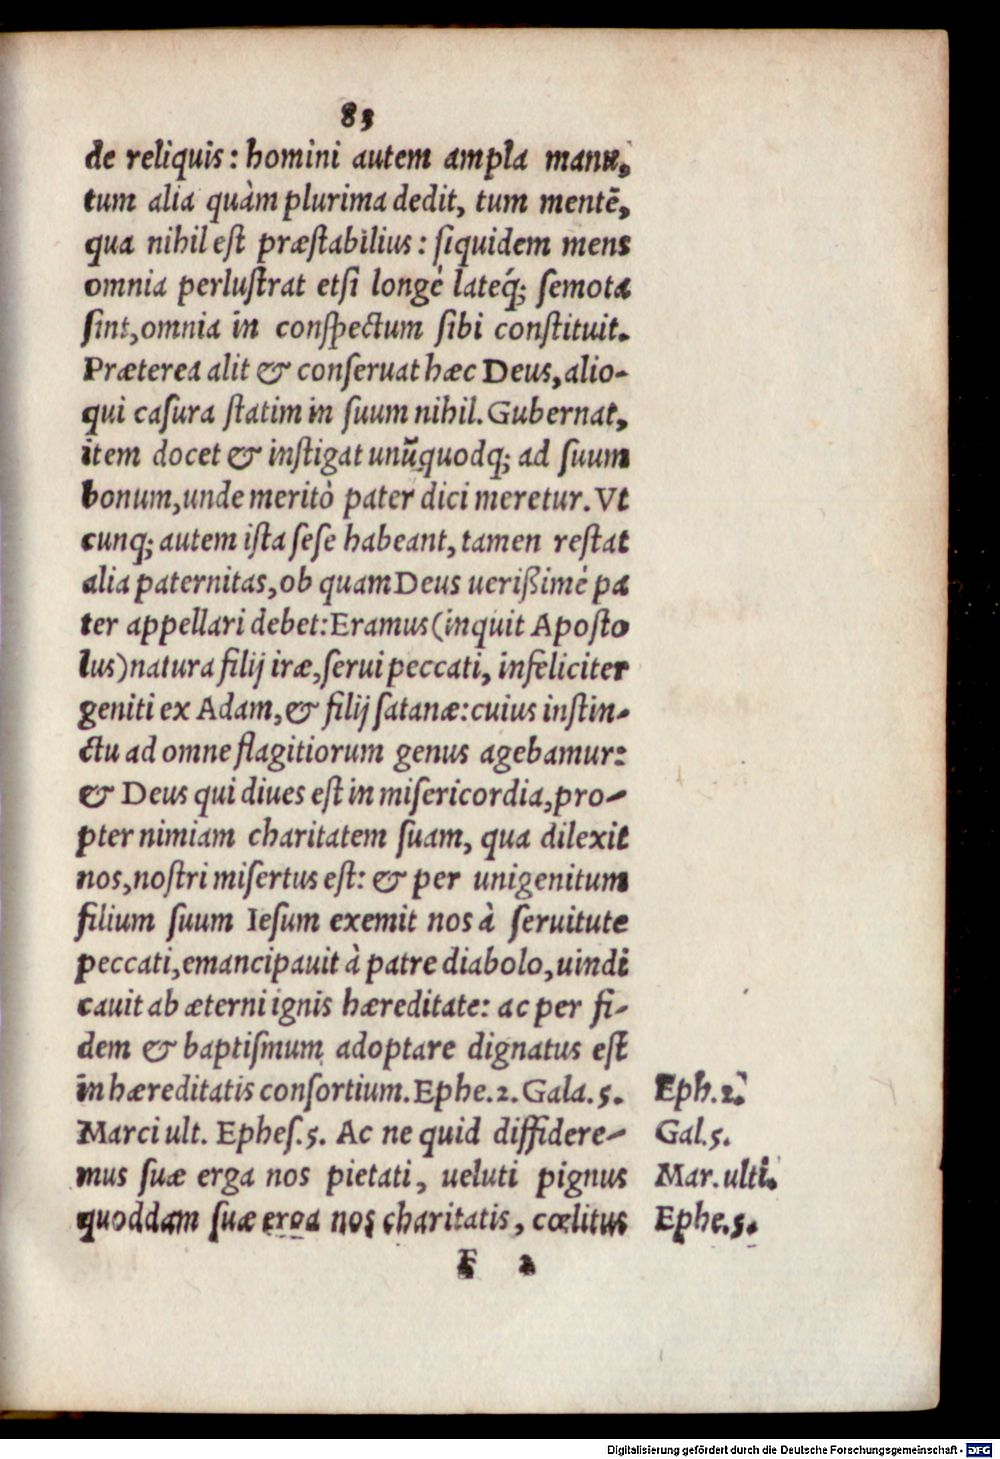 83
de reliquis: homini autem ampla manu,
tum alia quàm plurima dedit, tum mentē,
qua nihil est præstabilius: siquidem mens
omnia perlustrat etsi longè lateq́; semota
sint, omnia in conspectum sibi constituit.
Præterea alit & conseruat hæc Deus, alio-
qui casura statim in suum nihil. Gubernat,
item docet & instigat unūquodq; ad suum
bonum, unde meritò pater dici meretur. Vt
cunq; autem ista sese habeant, tamen restat
alia paternitas, ob quam Deus uerißimè pa
ter appellari debet: Eramus (inquit Aposto
lus) natura filij iræ, serui peccati, infeliciter
geniti ex Adam, & filij satanæ: cuius instin-
ctu ad omne flagitiorum genus agebamur:
& Deus qui diues est in misericordia, pro-
pter nimiam charitatem suam, qua dilexit
nos, nostri misertus est: & per unigenitum
filium suum Iesum exemit nos à seruitute
peccati, emancipauit à patre diabolo, uindi
cauit ab æterni ignis hæreditate: ac per fi-
dem & baptismum adoptare dignatus est
in hæreditatis consortium. Ephe. 2. Gala. 5.
Marci ult. Ephes. 5. Ac ne quid diffidere-
mus suæ erga nos pietati, ueluti pignus
quoddam suæ erga nos charitatis, cœlitus
Eph. 2.
Gal. 5.
Mar. ulti.
Ephe. 5.
F 2
Digitalisierung gefördert durch die Deutsche Forschungsgemeinschaft - DFG